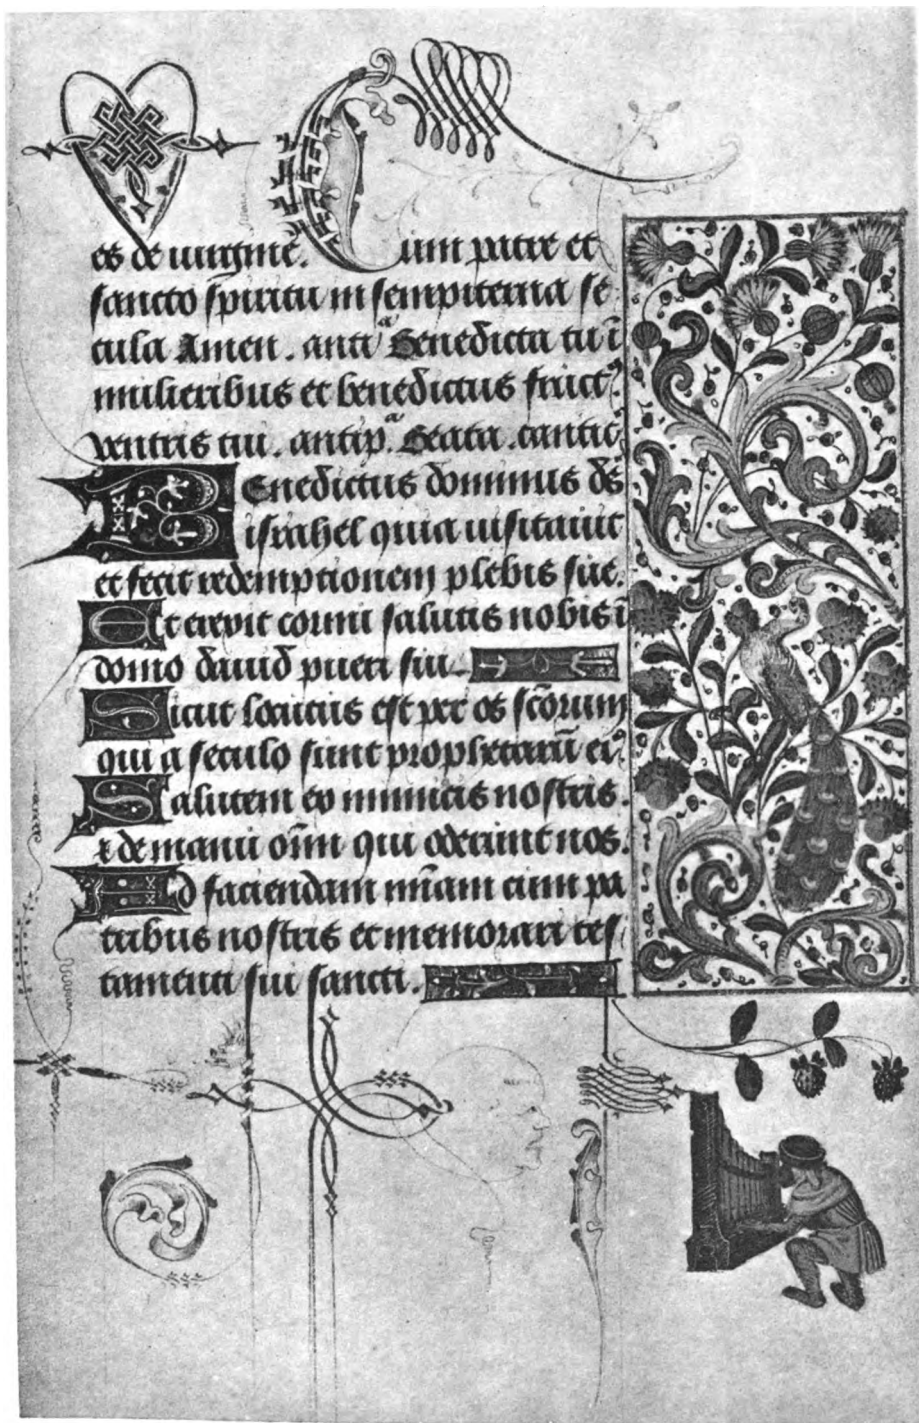 es de uirgine. Cum patre et
sancto spiritu in sempiterna se
cula Amen. antiᵃ Benedicta tu ī
mulieribus et benedictus fruct᾽
ventris tui. antipᵃ. Beata. cantic᾽
Benedictus dominus ds̄
israhel quia uisitauit
et fecit redemptionem plebis sue.
Et erexit cornu salutis nobis ī
domo dauid pueri sui
Sicut locutus est per os sc̄orum
qui a seculo sunt prophetarū ei᾽
Salutem ex inimicis nostris.
⁊ de manu om̄ qui oderunt nos.
Ad faciendam mīam cum pa
tribus nostris et memorari tes
tamenti sui sancti.